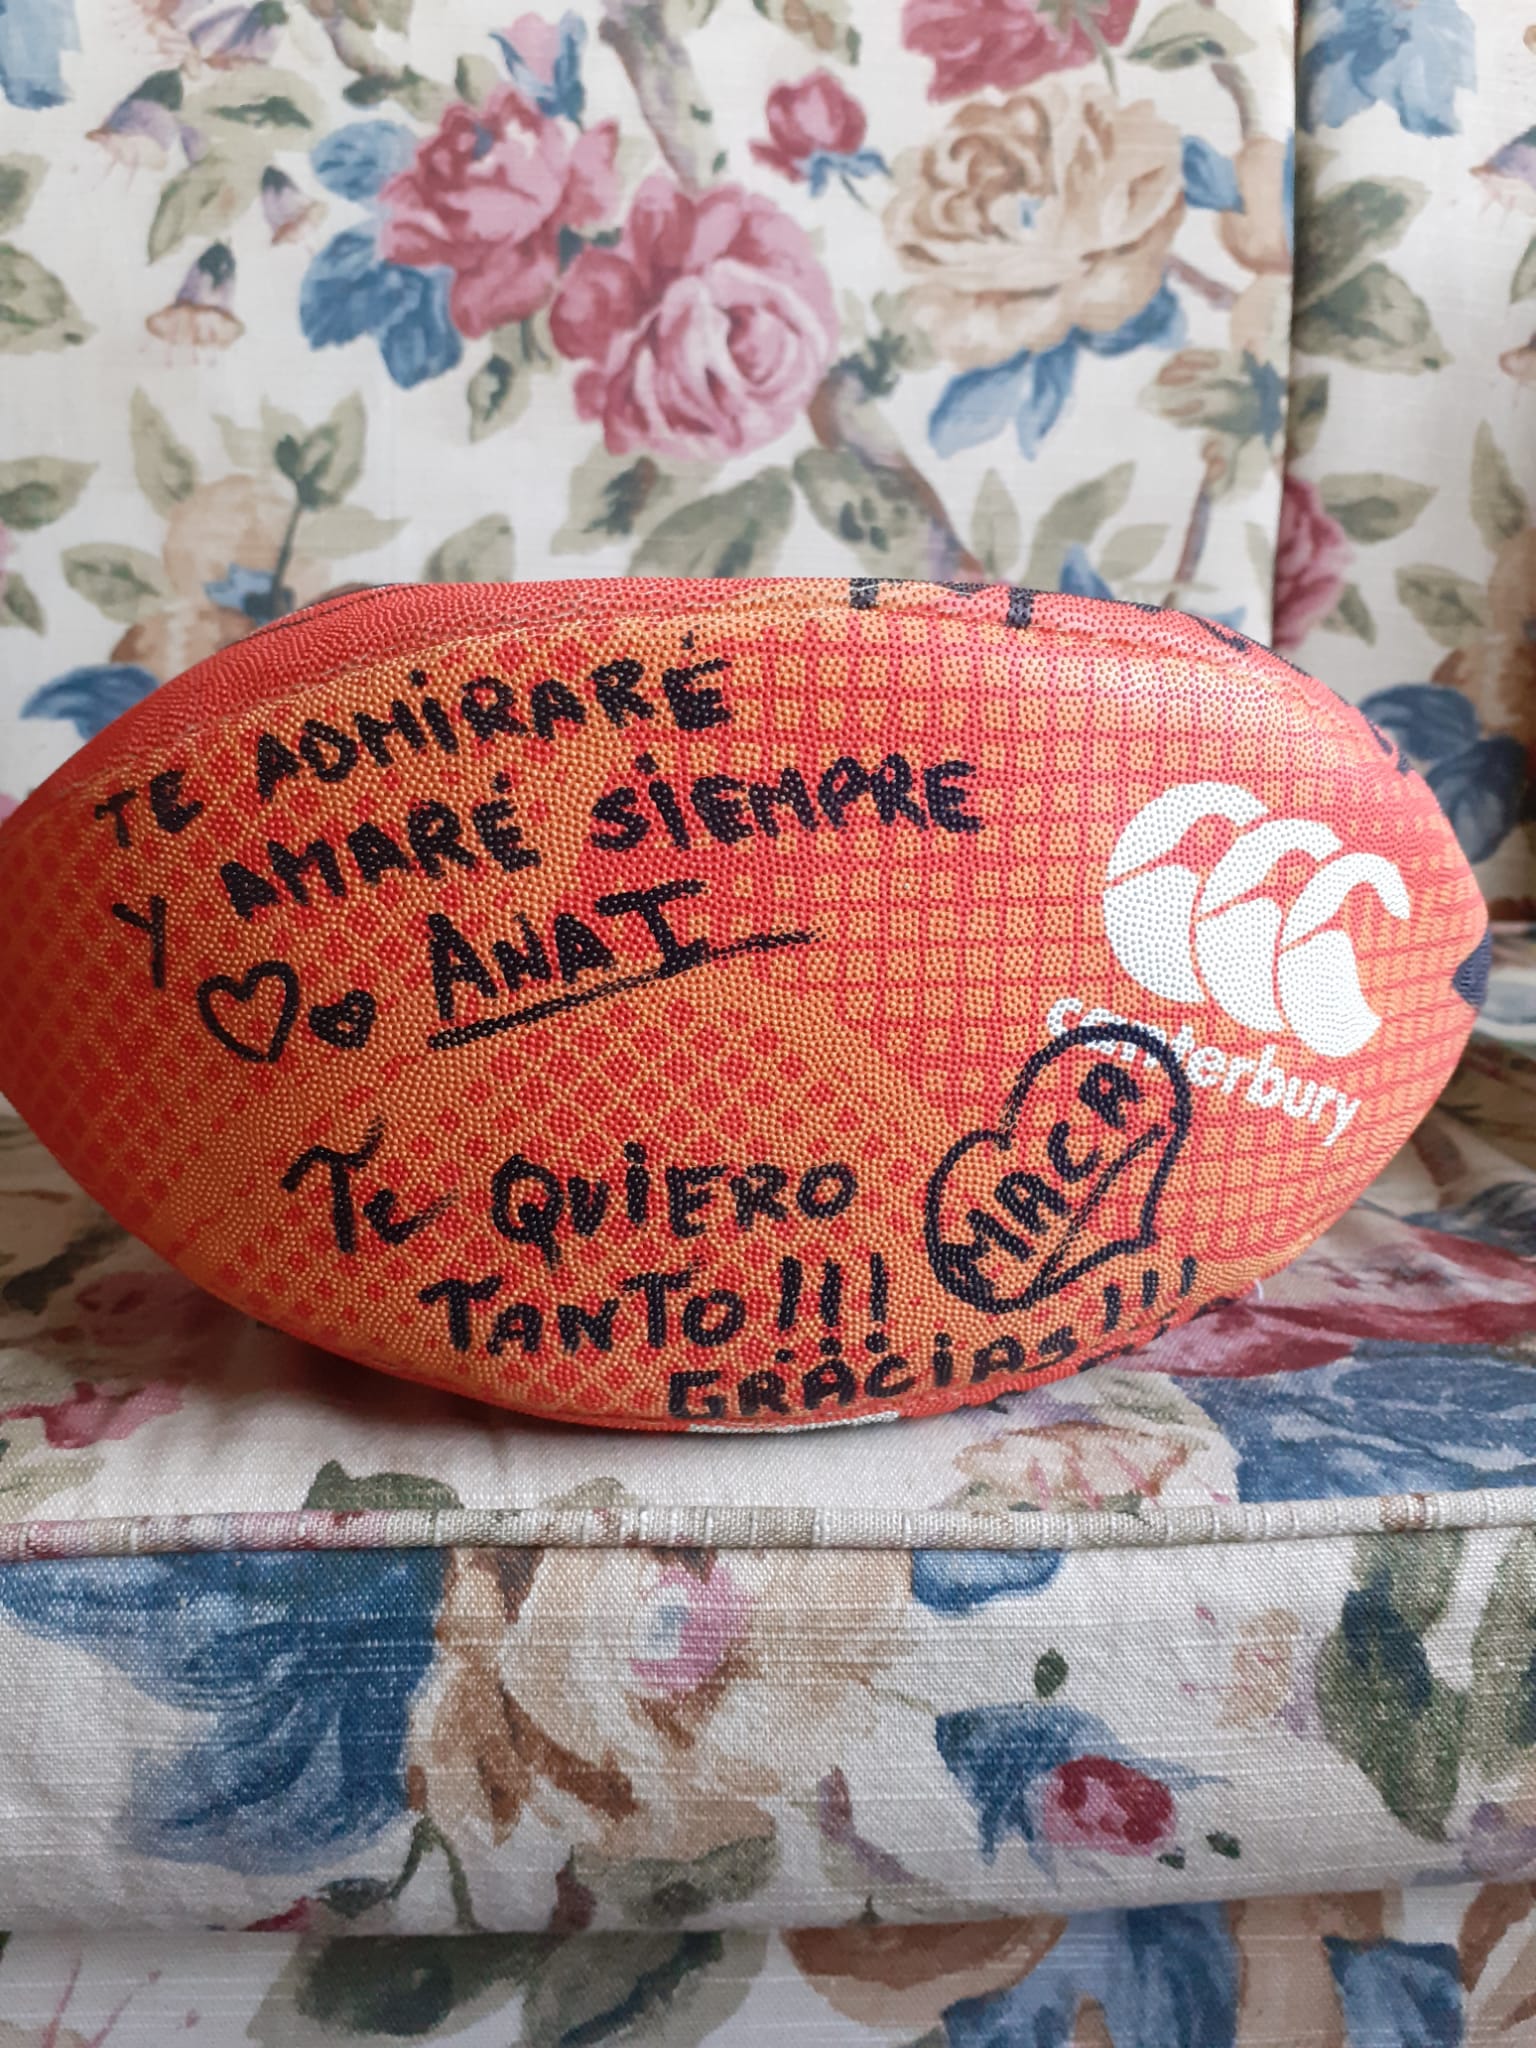 TE ADMiRARÉ
Y AMARÉ SiEMPRE
ANAI
canterbury
MACA
Te QUiERO
TANTO!!!
GRACiAS!!!